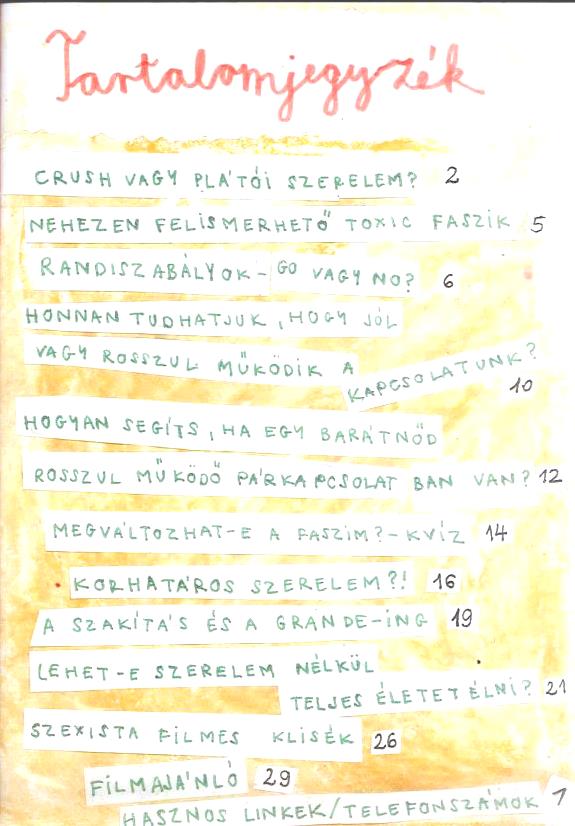 Tartalomjegyzék
CRUSH VAGY PLÁTÓI SZERELEM? 2
NEHEZEN FELISMERHETŐ TOXIC FASZIK 5
RANDISZABÁLYOK - GO VAGY NO? 6
HONNAN TUDHATJUK, HOGY JÓL
VAGY ROSSZUL MŰKÖDIK A
KAPCSOLATUNK?
10
HOGYAN SEGÍTS, HA EGY BARÁTNŐD
ROSSZUL MŰKÖDŐ PÁRKAPCSOLAT BAN VAN? 12
MEGVÁLTOZHAT-E A FASZIM? - KVÍZ 14
KORHATÁROS SZERELEM?! 16
A SZAKÍTÁS ÉS A GRANDE-ING 19
LEHET-E SZERELEM NÉLKÜL
TELJES ÉLETET ÉLNI? 21
SZEXISTA FILMES KLISÉK 26
FILMAJÁNLÓ 29
HASZNOS LINKEK/TELEFONSZÁMOK